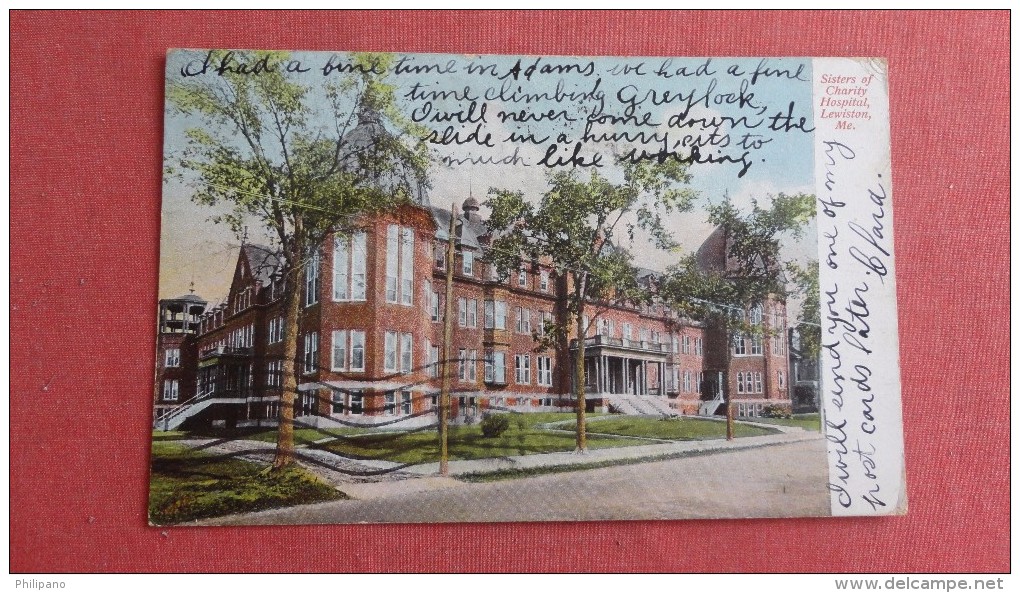 I had a fine time in Adams, we had a fine
time climbing Greylock,
I will never come down the
slide in a hurry, its to
much like working.
Sisters of
Charity
Hospital,
Lewiston,
Me.
I will send you one of my
post cards later Clara.
Philipano
www.delcampe.net